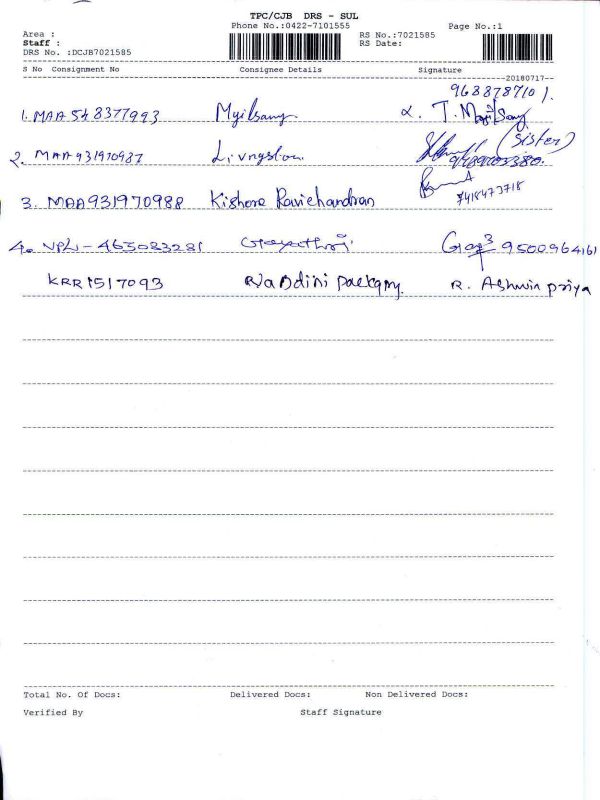 TPC/CJB DRS - SUL
Phone No.:0422-7101555
Page No.:1
Area :
Staff :
DRS No. :DCJB7021585
RS No.:7021585
RS Date:
S No Consignment No Consignee Details Signature
20180717
9688787101.
1. MAA 548377993 Myilsamy T. Myilsamy
(Sister)
2. MAA 931970987 Livingston
3. MAA931970988 Kishore Ravichandran 7418473718
4. VPL - 465083281 9500964161
KRR1517093 Nandini R. Ashwin priya
Total No. Of Docs: Delivered Docs: Non Delivered Docs:
Verified By Staff Signature